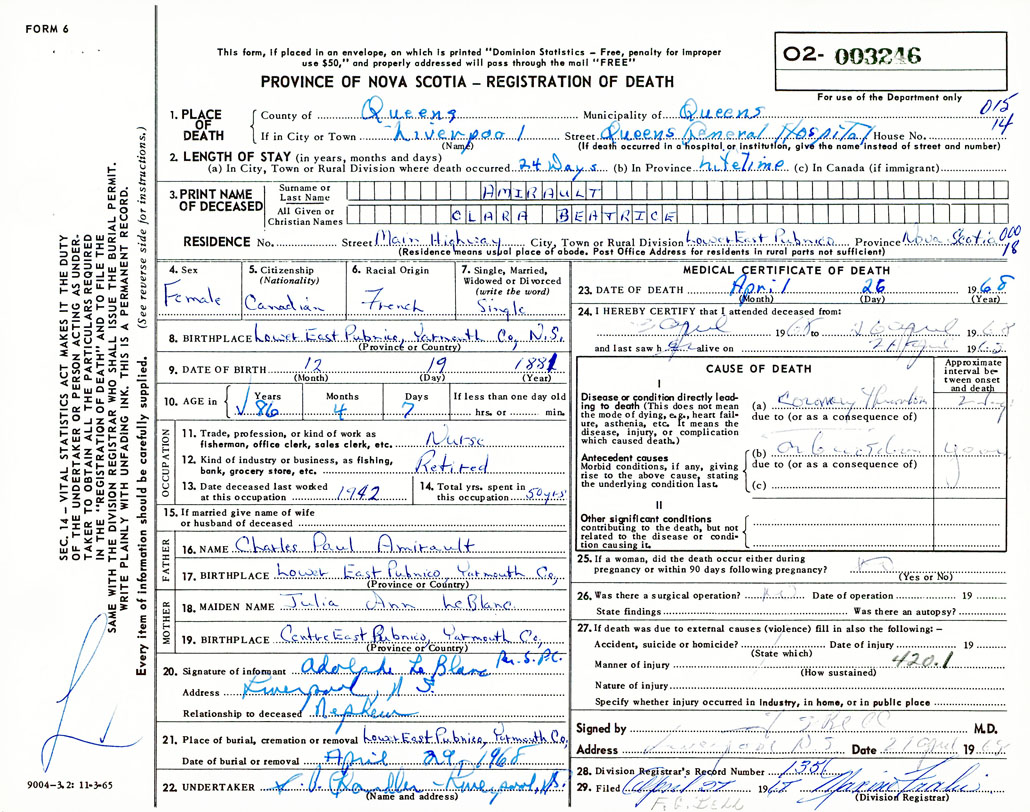 FORM 6
This form, if placed in an envelope, on which is printed "Dominion Statistics – Free, penalty for improper
use $50," and properly addressed will pass through the mail "FREE"
PROVINCE OF NOVA SCOTIA – REGISTRATION OF DEATH
02- 003246
For use of the Department only
015
14
1. PLACE OF DEATH
County of Queens Municipality of Queens
If in City or Town Liverpool Street Queens General Hospital House No.
(Name) (If death occurred in a hospital or institution, give the name instead of street and number)
2. LENGTH OF STAY (in years, months and days)
(a) In City, Town or Rural Division where death occurred 24 Days (b) In Province Lifetime (c) In Canada (if immigrant)
3. PRINT NAME OF DECEASED
Surname or Last Name AMIRAULT
All Given or Christian Names CLARA BEATRICE
RESIDENCE No. Street Main Highway City, Town or Rural Division Lower East Pubnico Province Nova Scotia 000
18
(Residence means usual place of abode. Post Office Address for residents in rural parts not sufficient)
4. Sex
Female
5. Citizenship
(Nationality)
Canadian
6. Racial Origin
French
7. Single, Married,
Widowed or Divorced
(write the word)
Single
8. BIRTHPLACE Lower East Pubnico, Yarmouth Co, N.S.
(Province or Country)
9. DATE OF BIRTH 12 19 1881
(Month) (Day) (Year)
10. AGE in Years 86 Months 4 Days 7 If less than one day old
hrs. or min.
OCCUPATION
11. Trade, profession, or kind of work as
fisherman, office clerk, sales clerk, etc. Nurse
12. Kind of industry or business, as fishing,
bank, grocery store, etc. Retired
13. Date deceased last worked
at this occupation 1942
14. Total yrs. spent in
this occupation 50 yrs
15. If married give name of wife
or husband of deceased
FATHER
16. NAME Charles Paul Amirault
17. BIRTHPLACE Lower East Pubnico, Yarmouth Co,
(Province or Country)
MOTHER
18. MAIDEN NAME Julia Ann LeBlanc
19. BIRTHPLACE Centre East Pubnico, Yarmouth Co,
(Province or Country)
20. Signature of informant Adolphe Le Blanc Per. S.P.C.
Address Liverpool, N S.
Relationship to deceased Nephew
21. Place of burial, cremation or removal Lower East Pubnico, Yarmouth Co,
Date of burial or removal April 29, 1968
22. UNDERTAKER Chandler Liverpool, N.S.
(Name and address)
MEDICAL CERTIFICATE OF DEATH
23. DATE OF DEATH April 26 1968
(Month) (Day) (Year)
24. I HEREBY CERTIFY that I attended deceased from:
3 April 1968 to 26 April 1968
and last saw h alive on April 196
CAUSE OF DEATH
Approximate
interval be-
tween onset
and death
I
Disease or condition directly lead-
ing to death (This does not
mean the mode of dying, e.g., heart fail-
ure, asthenia, etc. It means the
disease, injury, or complication
which caused death.)
(a) Coronary
due to (or as a consequence of)
Antecedent causes
Morbid conditions, if any, giving
rise to the above cause, stating
the underlying condition last.
(b)
due to (or as a consequence of)
(c)
II
Other significant conditions
contributing to the death, but not
related to the disease or condi-
tion causing it.
25. If a woman, did the death occur either during
pregnancy or within 90 days following pregnancy? No
(Yes or No)
26. Was there a surgical operation? No Date of operation 19
State findings Was there an autopsy?
27. If death was due to external causes (violence) fill in also the following: –
Accident, suicide or homicide? Date of injury 19
(State which)
Manner of injury 420.1
(How sustained)
Nature of injury
Specify whether injury occurred in industry, in home, or in public place
Signed by M.D.
Address Liverpool N S Date April 1968
28. Division Registrar's Record Number 1351
29. Filed April 27 1968
(Division Registrar)
F. G. BELL
SEC. 14 – VITAL STATISTICS ACT MAKES IT THE DUTY
OF THE UNDERTAKER OR PERSON ACTING AS UNDER-
TAKER TO OBTAIN ALL THE PARTICULARS REQUIRED
IN THE "REGISTRATION OF DEATH" AND TO FILE THE
SAME WITH THE DIVISION REGISTRAR WHO SHALL ISSUE THE BURIAL PERMIT.
WRITE PLAINLY WITH UNFADING INK. THIS IS A PERMANENT RECORD.
Every item of information should be carefully supplied. (See reverse side for instructions.)
9004-3.2: 11-3-65